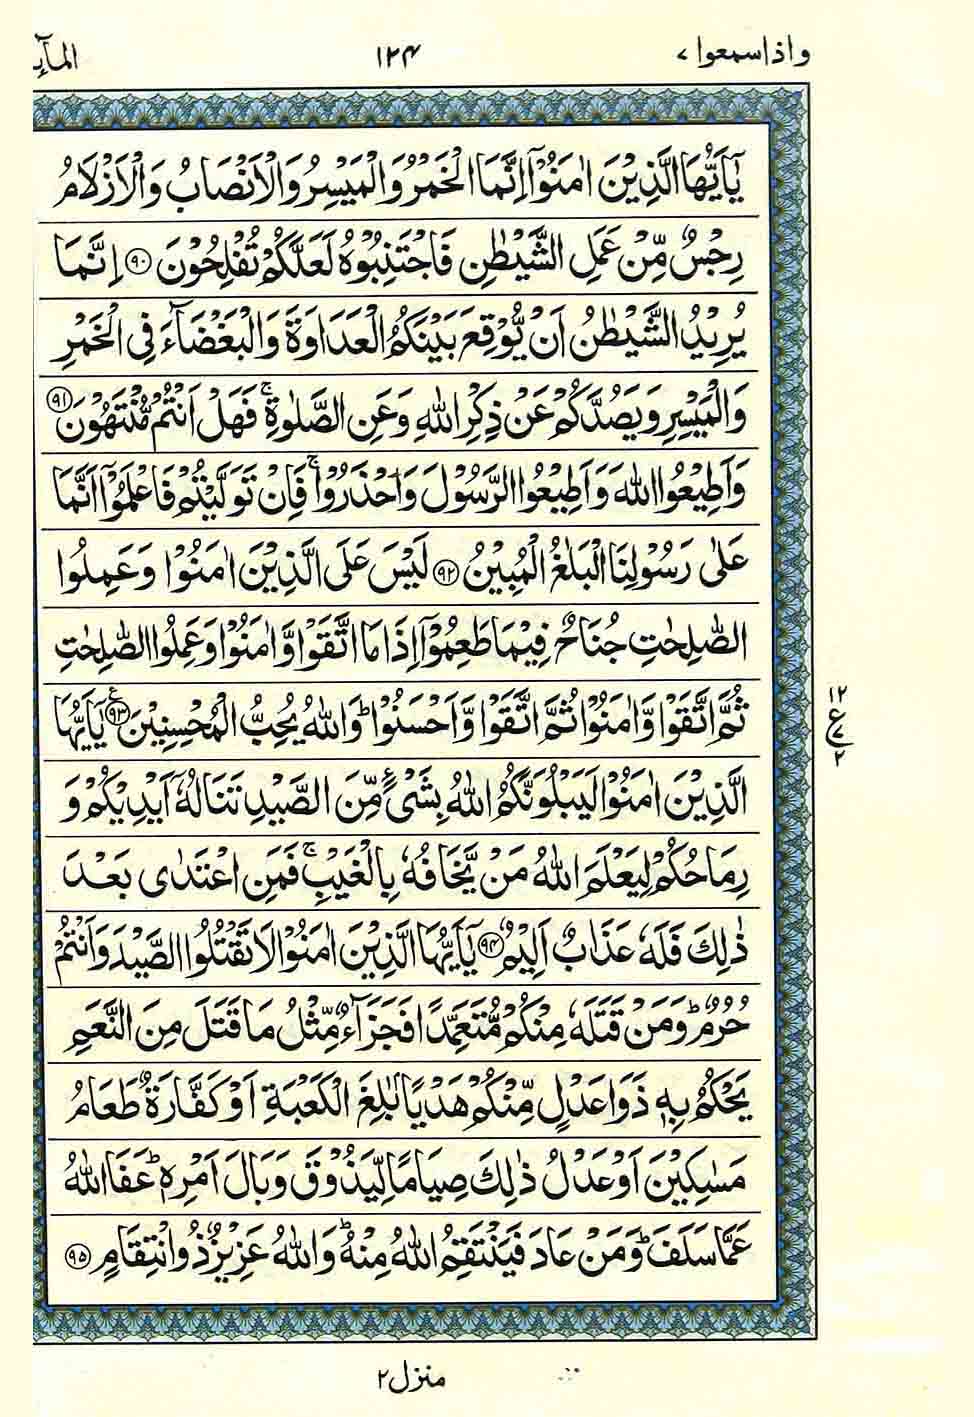 واذاسمعوا ۷
۱۲۴
المآى
يٰۤاَيُّهَا الَّذِيْنَ اٰمَنُوْۤا اِنَّمَا الْخَمْرُ وَ الْمَيْسِرُ وَ الْاَنْصَابُ وَ الْاَزْلَامُ
رِجْسٌ مِّنْ عَمَلِ الشَّيْطٰنِ فَاجْتَنِبُوْهُ لَعَلَّكُمْ تُفْلِحُوْنَ ۹۰ اِنَّمَا
يُرِيْدُ الشَّيْطٰنُ اَنْ يُّوْقِعَ بَيْنَكُمُ الْعَدَاوَةَ وَ الْبَغْضَآءَ فِى الْخَمْرِ
وَ الْمَيْسِرِ وَ يَصُدَّكُمْ عَنْ ذِكْرِ اللّٰهِ وَ عَنِ الصَّلٰوةِ ۚ فَهَلْ اَنْتُمْ مُّنْتَهُوْنَ ۹۱
وَ اَطِيْعُوا اللّٰهَ وَ اَطِيْعُوا الرَّسُوْلَ وَ احْذَرُوْا ۚ فَاِنْ تَوَلَّيْتُمْ فَاعْلَمُوْۤا اَنَّمَا
عَلٰى رَسُوْلِنَا الْبَلٰغُ الْمُبِيْنُ ۹۲ لَيْسَ عَلَى الَّذِيْنَ اٰمَنُوْا وَ عَمِلُوا
الصّٰلِحٰتِ جُنَاحٌ فِيْمَا طَعِمُوْۤا اِذَا مَا اتَّقَوْا وَّ اٰمَنُوْا وَ عَمِلُوا الصّٰلِحٰتِ
ثُمَّ اتَّقَوْا وَّ اٰمَنُوْا ثُمَّ اتَّقَوْا وَّ اَحْسَنُوْا ؕ وَ اللّٰهُ يُحِبُّ الْمُحْسِنِيْنَ ۹۳ع يٰۤاَيُّهَا
۱۲
ع
۷
۲
الَّذِيْنَ اٰمَنُوْا لَيَبْلُوَنَّكُمُ اللّٰهُ بِشَىْءٍ مِّنَ الصَّيْدِ تَنَالُهٗۤ اَيْدِيْكُمْ وَ
رِمَاحُكُمْ لِيَعْلَمَ اللّٰهُ مَنْ يَّخَافُهٗ بِالْغَيْبِ ۚ فَمَنِ اعْتَدٰى بَعْدَ
ذٰلِكَ فَلَهٗ عَذَابٌ اَلِيْمٌ ۹۴ يٰۤاَيُّهَا الَّذِيْنَ اٰمَنُوْا لَا تَقْتُلُوا الصَّيْدَ وَ اَنْتُمْ
حُرُمٌ ؕ وَ مَنْ قَتَلَهٗ مِنْكُمْ مُّتَعَمِّدًا فَجَزَآءٌ مِّثْلُ مَا قَتَلَ مِنَ النَّعَمِ
يَحْكُمُ بِهٖ ذَوَا عَدْلٍ مِّنْكُمْ هَدْيًۢا بٰلِغَ الْكَعْبَةِ اَوْ كَفَّارَةٌ طَعَامُ
مَسٰكِيْنَ اَوْ عَدْلُ ذٰلِكَ صِيَامًا لِّيَذُوْقَ وَبَالَ اَمْرِهٖ ؕ عَفَا اللّٰهُ
عَمَّا سَلَفَ ؕ وَ مَنْ عَادَ فَيَنْتَقِمُ اللّٰهُ مِنْهُ ؕ وَ اللّٰهُ عَزِيْزٌ ذُو انْتِقَامٍ ۹۵
منزل ۲